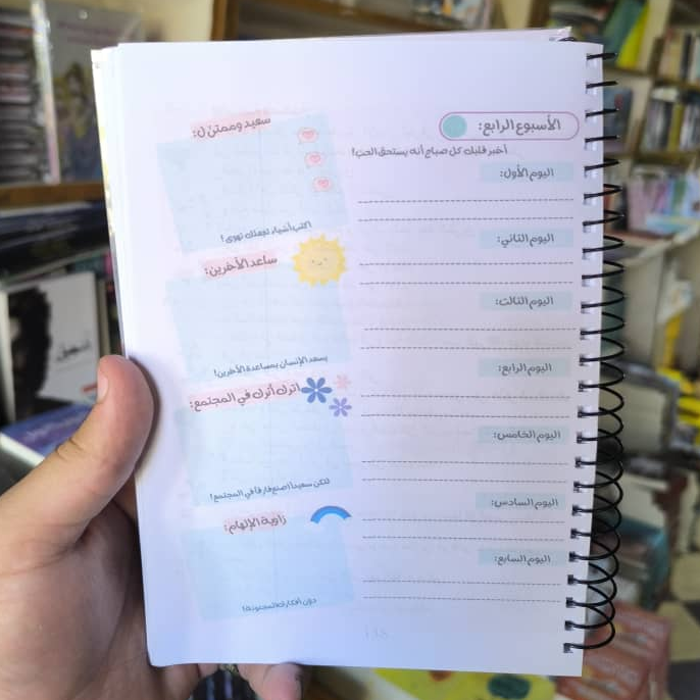 الأسبوع الرابع:
أخبر قلبك كل صباح أنه يستحق الحب!
اليوم الأول:
اليوم الثاني:
اليوم الثالث:
اليوم الرابع:
اليوم الخامس:
اليوم السادس:
اليوم السابع:
سعيد وممتن ل:
اكتب أشياء تجعلك تهوى!
ساعد الآخرين:
يسعد الإنسان بمساعدة الآخرين!
اترك أثرك في المجتمع:
لتكن سعيدا اصنع فارقا في المجتمع!
زاوية الإلهام:
دون أفكارك المجنونة!